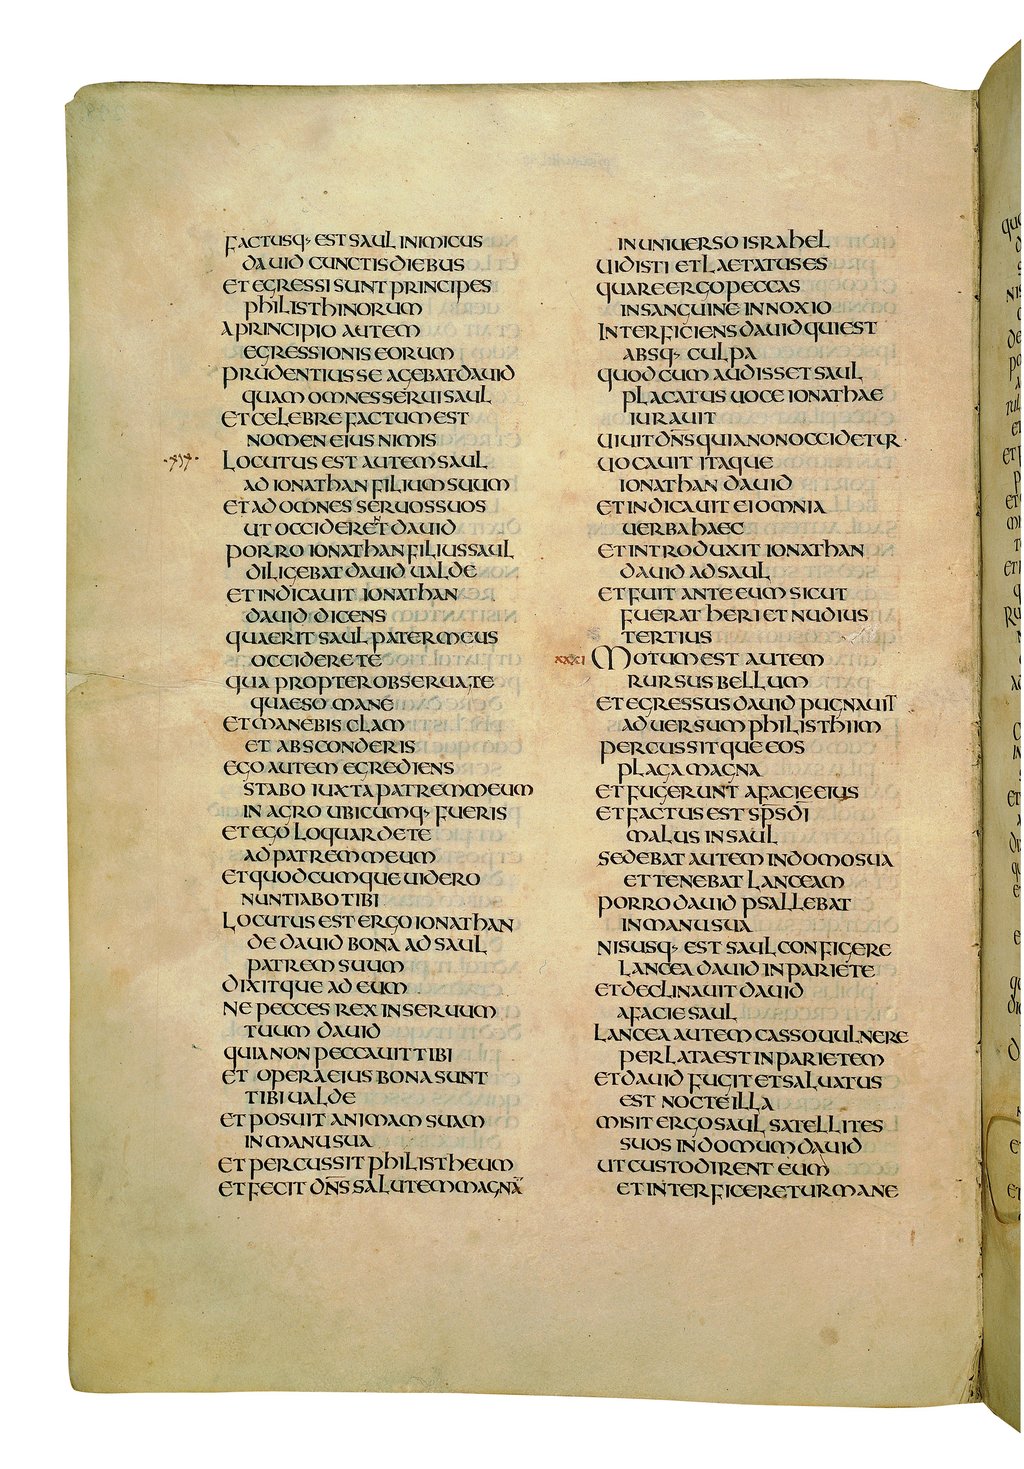 FACTUSQ· EST SAUL INIMICUS
DAUID CUNCTIS DIEBUS
ET EGRESSI SUNT PRINCIPES
PHILISTHINORUM
A PRINCIPIO AUTEM
EGRESSIONIS EORUM
PRUDENTIUS SE AGEBAT DAUID
QUAM OMNES SERUI SAUL
ET CELEBRE FACTUM EST
NOMEN EIUS NIMIS
LOCUTUS EST AUTEM SAUL
AD IONATHAN FILIUM SUUM
ET AD OMNES SERUOS SUOS
UT OCCIDERET DAUID
PORRO IONATHAN FILIUS SAUL
DILIGEBAT DAUID UALDE
ET INDICAUIT IONATHAN
DAUID DICENS
QUAERIT SAUL PATER MEUS
OCCIDERE TE
QUA PROPTER OBSERUA TE
QUAESO MANE
ET MANEBIS CLAM
ET ABSCONDERIS
EGO AUTEM EGREDIENS
STABO IUXTA PATREM MEUM
IN AGRO UBICUMQ· FUERIS
ET EGO LOQUAR DE TE
AD PATREM MEUM
ET QUODCUMQUE UIDERO
NUNTIABO TIBI
LOCUTUS EST ERGO IONATHAN
DE DAUID BONA AD SAUL
PATREM SUUM
DIXITQUE AD EUM
NE PECCES REX IN SERUUM
TUUM DAUID
QUIA NON PECCAUIT TIBI
ET OPERA EIUS BONA SUNT
TIBI UALDE
ET POSUIT ANIMAM SUAM
IN MANU SUA
ET PERCUSSIT PHILISTHEUM
ET FECIT DN̄S SALUTEM MAGNĀ
IN UNIUERSO ISRAHEL
UIDISTI ET LAETATUS ES
QUARE ERGO PECCAS
IN SANGUINE INNOXIO
INTERFICIENS DAUID QUI EST
ABSQ· CULPA
QUOD CUM AUDISSET SAUL
PLACATUS UOCE IONATHAE
IURAUIT
UIUIT DN̄S QUIA NON OCCIDETUR
UOCAUIT ITAQUE
IONATHAN DAUID
ET INDICAUIT EI OMNIA
UERBA HAEC
ET INTRODUXIT IONATHAN
DAUID AD SAUL
ET FUIT ANTE EUM SICUT
FUERAT HERI ET NUDIUS
TERTIUS
XXXI MOTUM EST AUTEM
RURSUS BELLUM
ET EGRESSUS DAUID PUGNAUIT
ADUERSUM PHILISTHIIM
PERCUSSITQUE EOS
PLAGA MAGNA
ET FUGERUNT A FACIE EIUS
ET FACTUS EST SP̄S DĪ
MALUS IN SAUL
SEDEBAT AUTEM IN DOMO SUA
ET TENEBAT LANCEAM
PORRO DAUID PSALLEBAT
IN MANU SUA
NISUSQ· EST SAUL CONFIGERE
LANCEA DAUID IN PARIETE
ET DECLINAUIT DAUID
A FACIE SAUL
LANCEA AUTEM CASSO UULNERE
PERLATA EST IN PARIETEM
ET DAUID FUGIT ET SALUATUS
EST NOCTE ILLA
MISIT ERGO SAUL SATELLITES
SUOS IN DOMUM DAUID
UT CUSTODIRENT EUM
ET INTERFICERETUR MANE